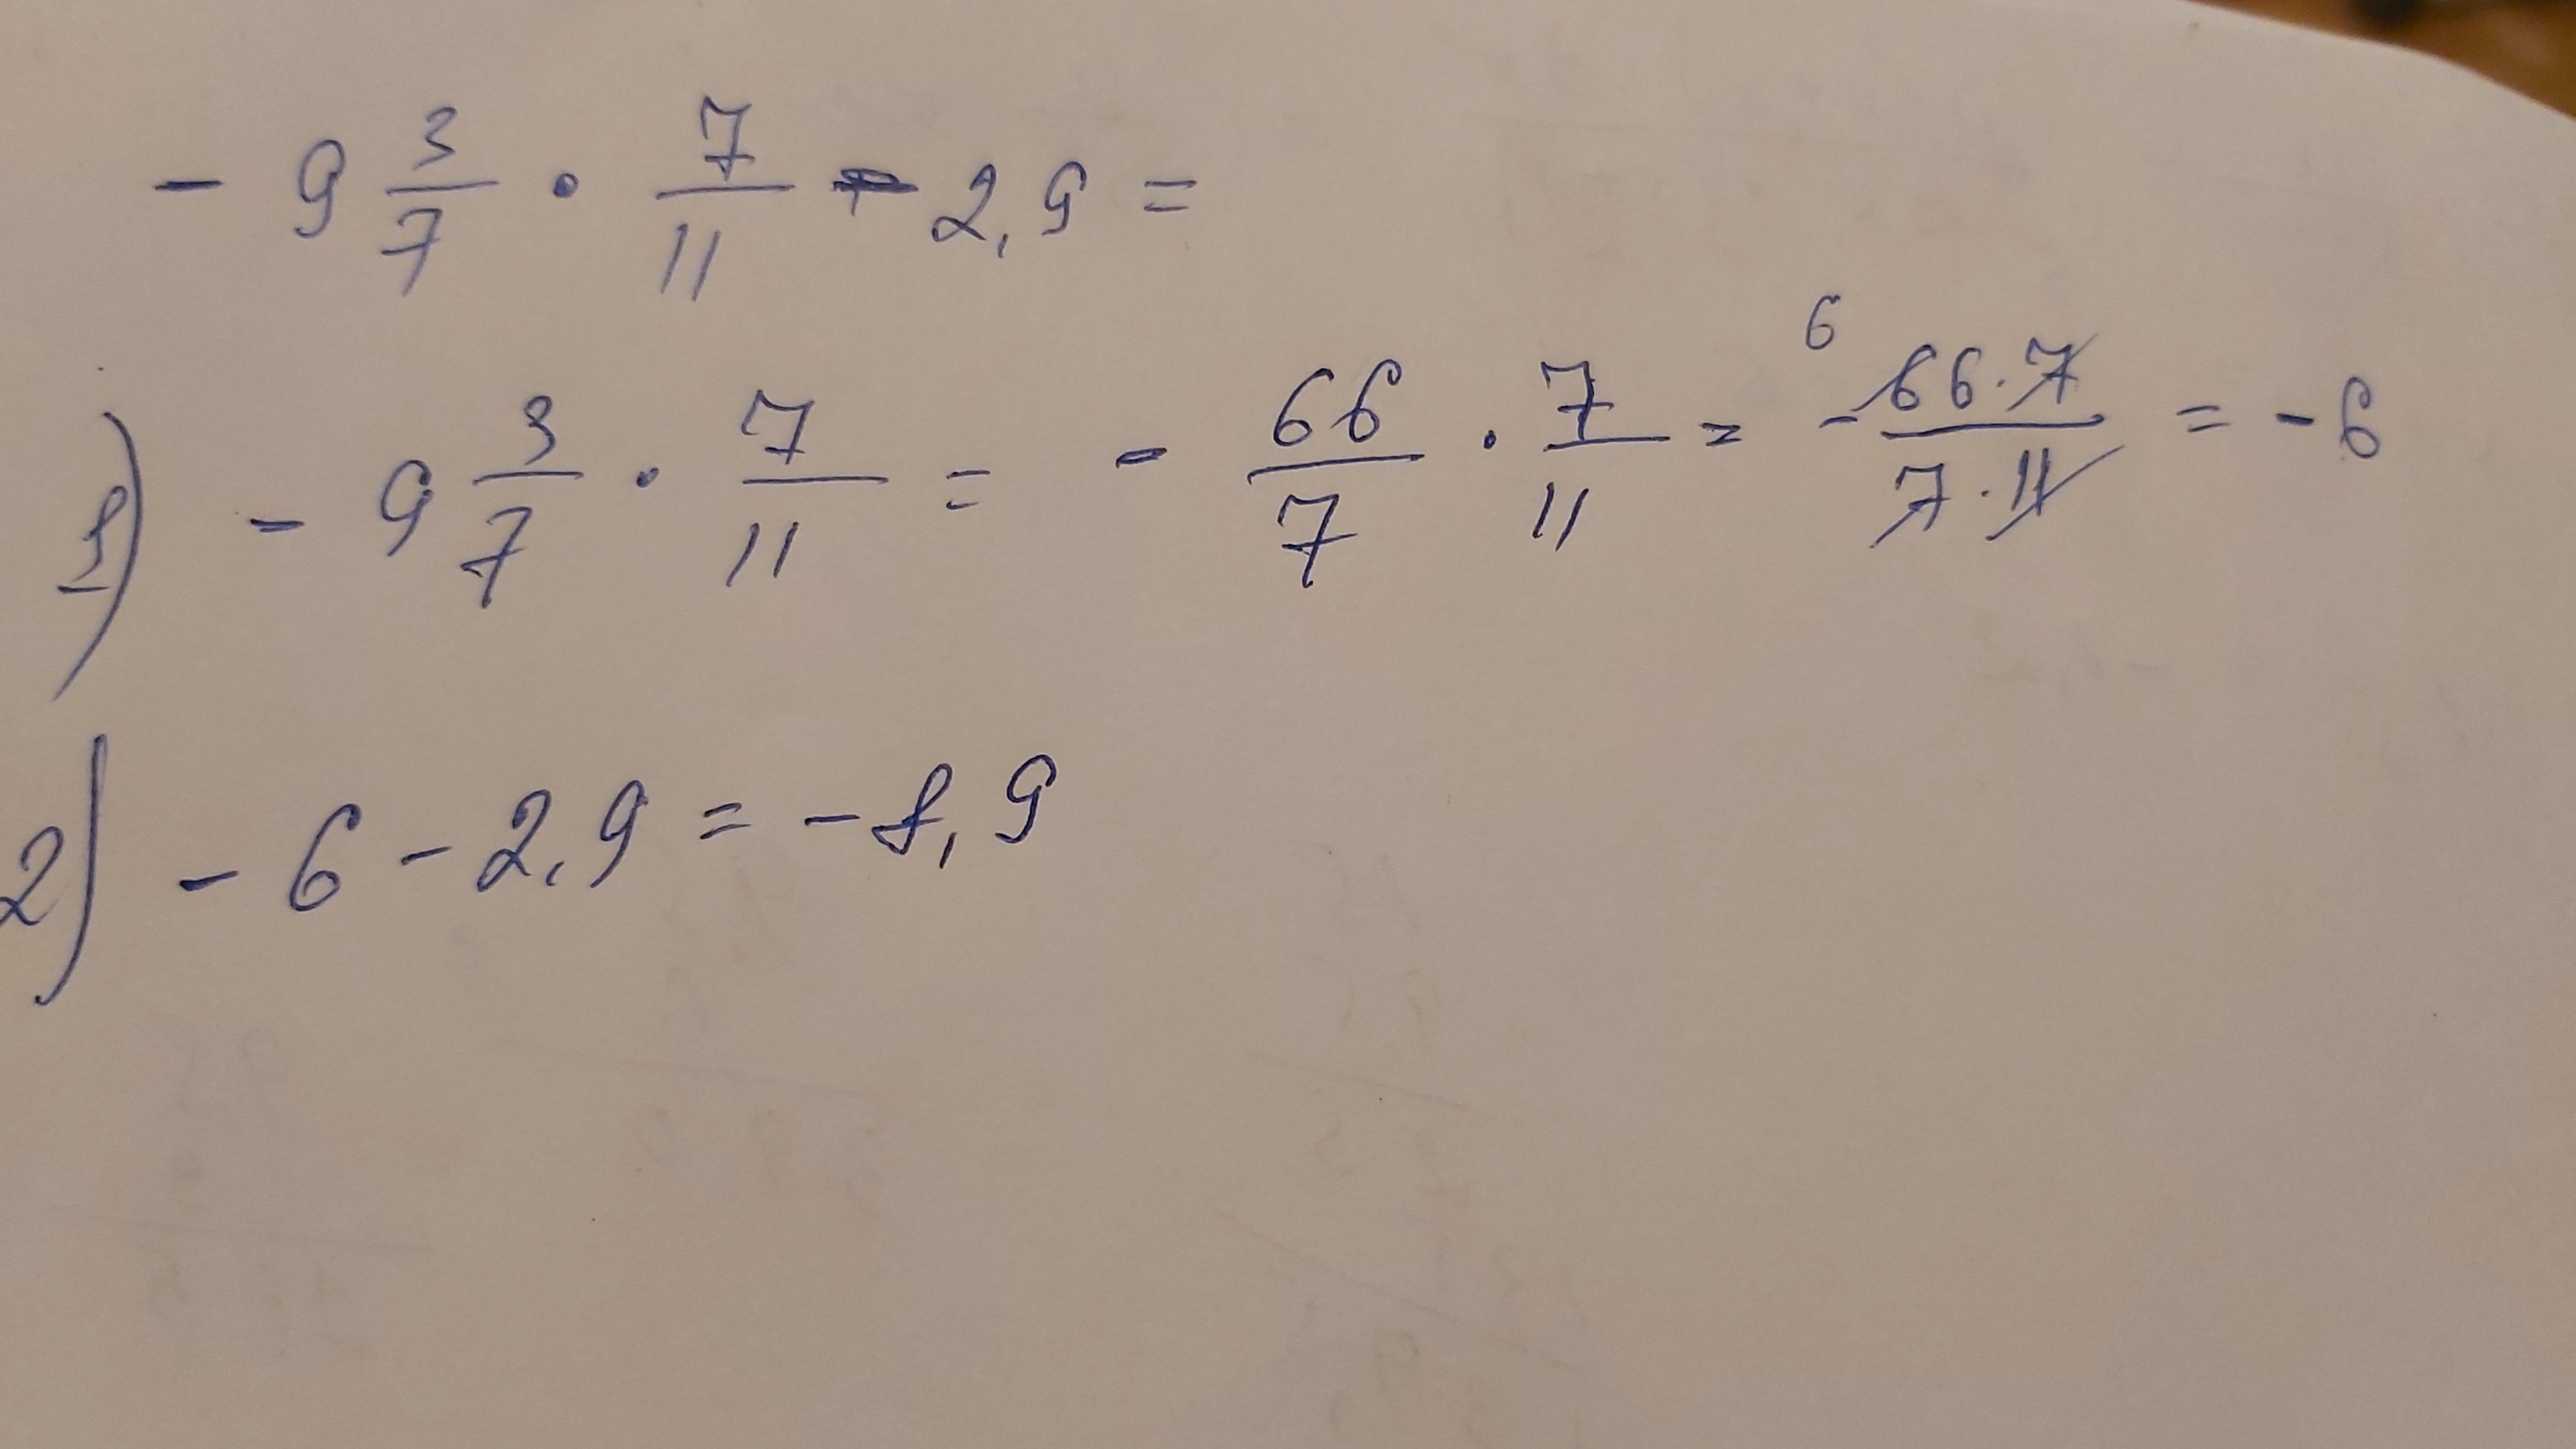 - 9 3/7 · 7/11 - 2,9 =
1) - 9 3/7 · 7/11 = - 66/7 · 7/11 = - 6 66·7/7·11 = - 6
2) - 6 - 2,9 = - 8,9